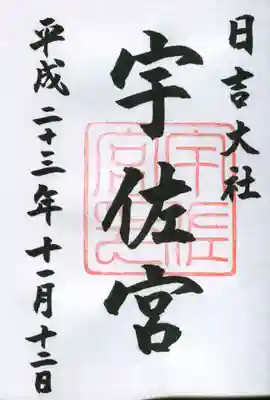 日吉大社
宇佐宮
平成二十三年十一月十二日